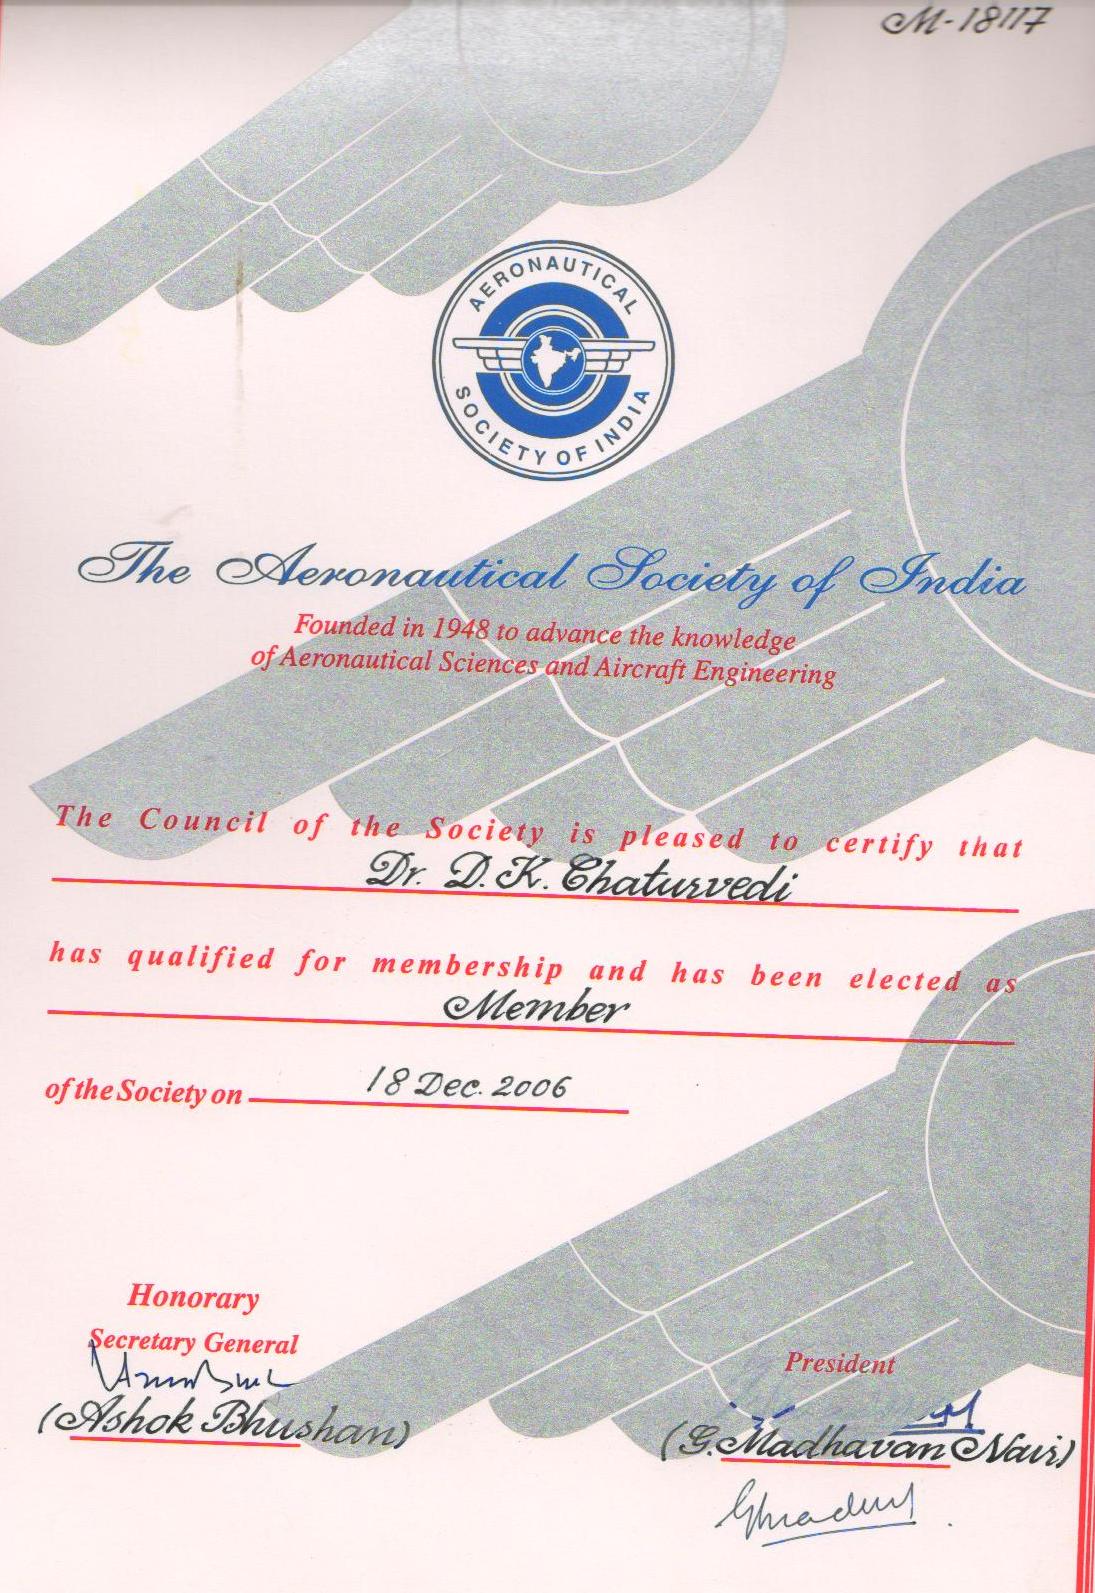 M-18117
AERONAUTICAL
SOCIETY OF INDIA
The Aeronautical Society of India
Founded in 1948 to advance the knowledge
of Aeronautical Sciences and Aircraft Engineering
The Council of the Society is pleased to certify that
Dr. D. K. Chaturvedi
has qualified for membership and has been elected as
Member
of the Society on 18 Dec. 2006
Honorary
Secretary General
(Ashok Bhushan)
President
(G. Madhavan Nair)